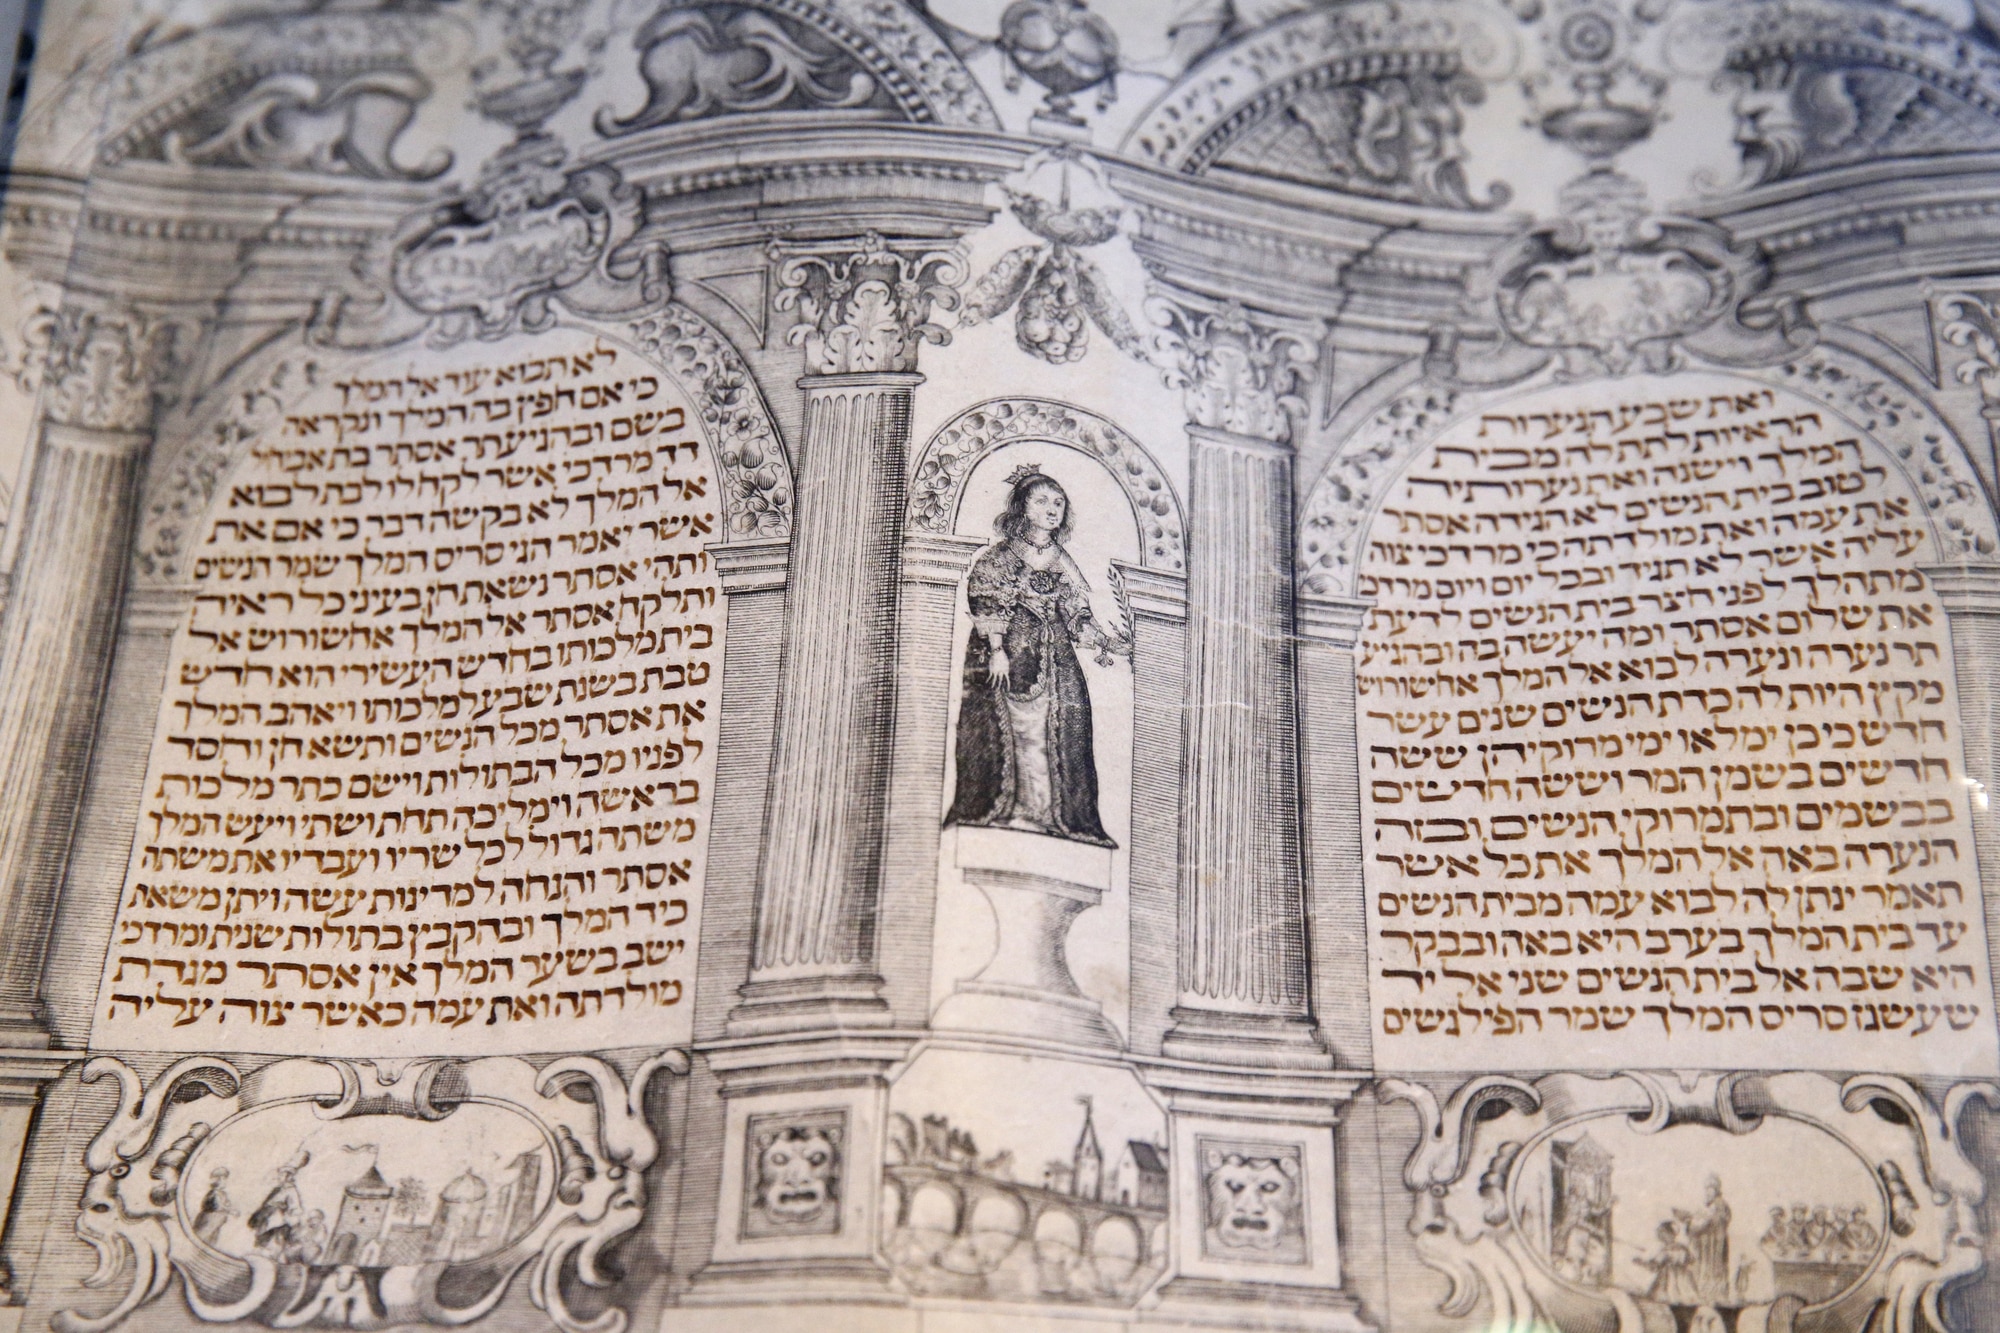 ואת שבע הנערות
הראיות לתת לה מבית
המלך וישנה ואת נערותיה
לטוב בית הנשים לא הגידה אסתר
את עמה ואת מולדתה כי מרדכי צוה
עליה אשר לא תגיד ובכל יום ויום מרדכי
מתהלך לפני חצר בית הנשים לדעת
את שלום אסתר ומה יעשה בה ובהגיע
תר נערה ונערה לבוא אל המלך אחשורוש
מקץ היות לה כדת הנשים שנים עשר
חדש כי כן ימלאו ימי מרוקיהן ששה
חדשים בשמן המר וששה חדשים
בבשמים ובתמרוקי הנשים ובזה
הנערה באה אל המלך את כל אשר
תאמר ינתן לה לבוא עמה מבית הנשים
עד בית המלך בערב היא באה ובבקר
היא שבה אל בית הנשים שני אל יד
שעשגז סריס המלך שמר הפילגשים
לא תבוא עוד אל המלך
כי אם חפץ בה המלך ונקראה
בשם ובהגיע תר אסתר בת אביחיל
דד מרדכי אשר לקח לו לבת לבוא
אל המלך לא בקשה דבר כי אם את
אשר יאמר הגי סריס המלך שמר הנשים
ותהי אסתר נשאת חן בעיני כל ראיה
ותלקח אסתר אל המלך אחשורוש אל
בית מלכותו בחדש העשירי הוא חדש
טבת בשנת שבע למלכותו ויאהב המלך
את אסתר מכל הנשים ותשא חן וחסד
לפניו מכל הבתולות וישם כתר מלכות
בראשה וימליכה תחת ושתי ויעש המלך
משתה גדול לכל שריו ועבדיו את משתה
אסתר והנחה למדינות עשה ויתן משאת
כיד המלך ובהקבץ בתולות שנית ומרדכי
ישב בשער המלך אין אסתר מגדת
מולדתה ואת עמה כאשר צוה עליה